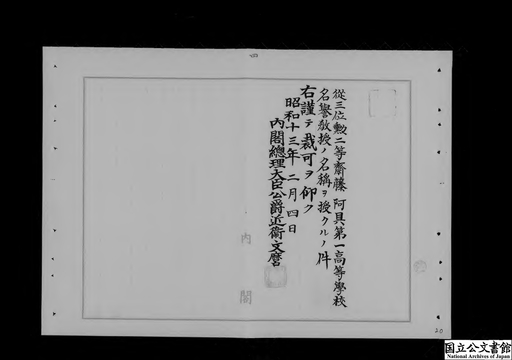 從三位勳二等齋藤阿具第一高等學校
名譽敎授ノ名稱ヲ授クルノ件
右謹テ裁可ヲ仰ク
昭和十三年二月四日
內閣總理大臣公爵近衞文麿
內閣
20
国立公文書館
National Archives of Japan